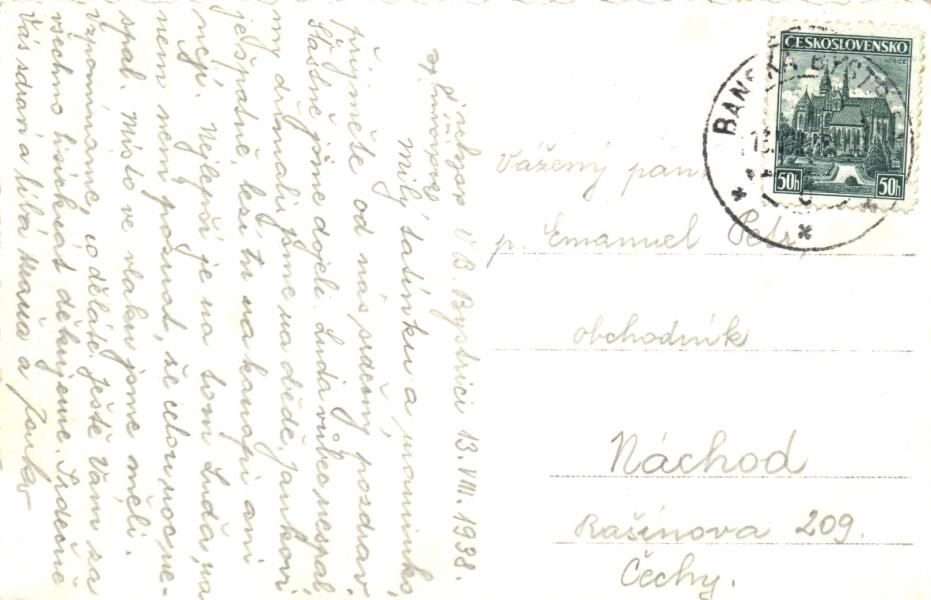 V B. Bystrici 13. VIII. 1938.
Milý tatínku a maminko,
přijměte od nás srdečný pozdrav.
Šťastně jsme dojeli. Luďa vůbec nespal
my dřímali jsme na děde, jenkovi
je špatně, leží tu na kanapi ani
nejí. Nejlepší je na tom Luďa, na
něm není poznat, že celou noc ne-
spal. Místo ve vlaku jsme měli.
Vzpomínáme, co děláte. Ještě Vám za
všechno tisíckrát děkujeme. Srdečně
Vás zdraví a líbá Máňa a
Vážený pán
p. Emanuel Petr
obchodník
Náchod
Rašínova 209.
Čechy.
ČESKOSLOVENSKO
KOŠICE
50h 50h
BANSKÁ BYSTR